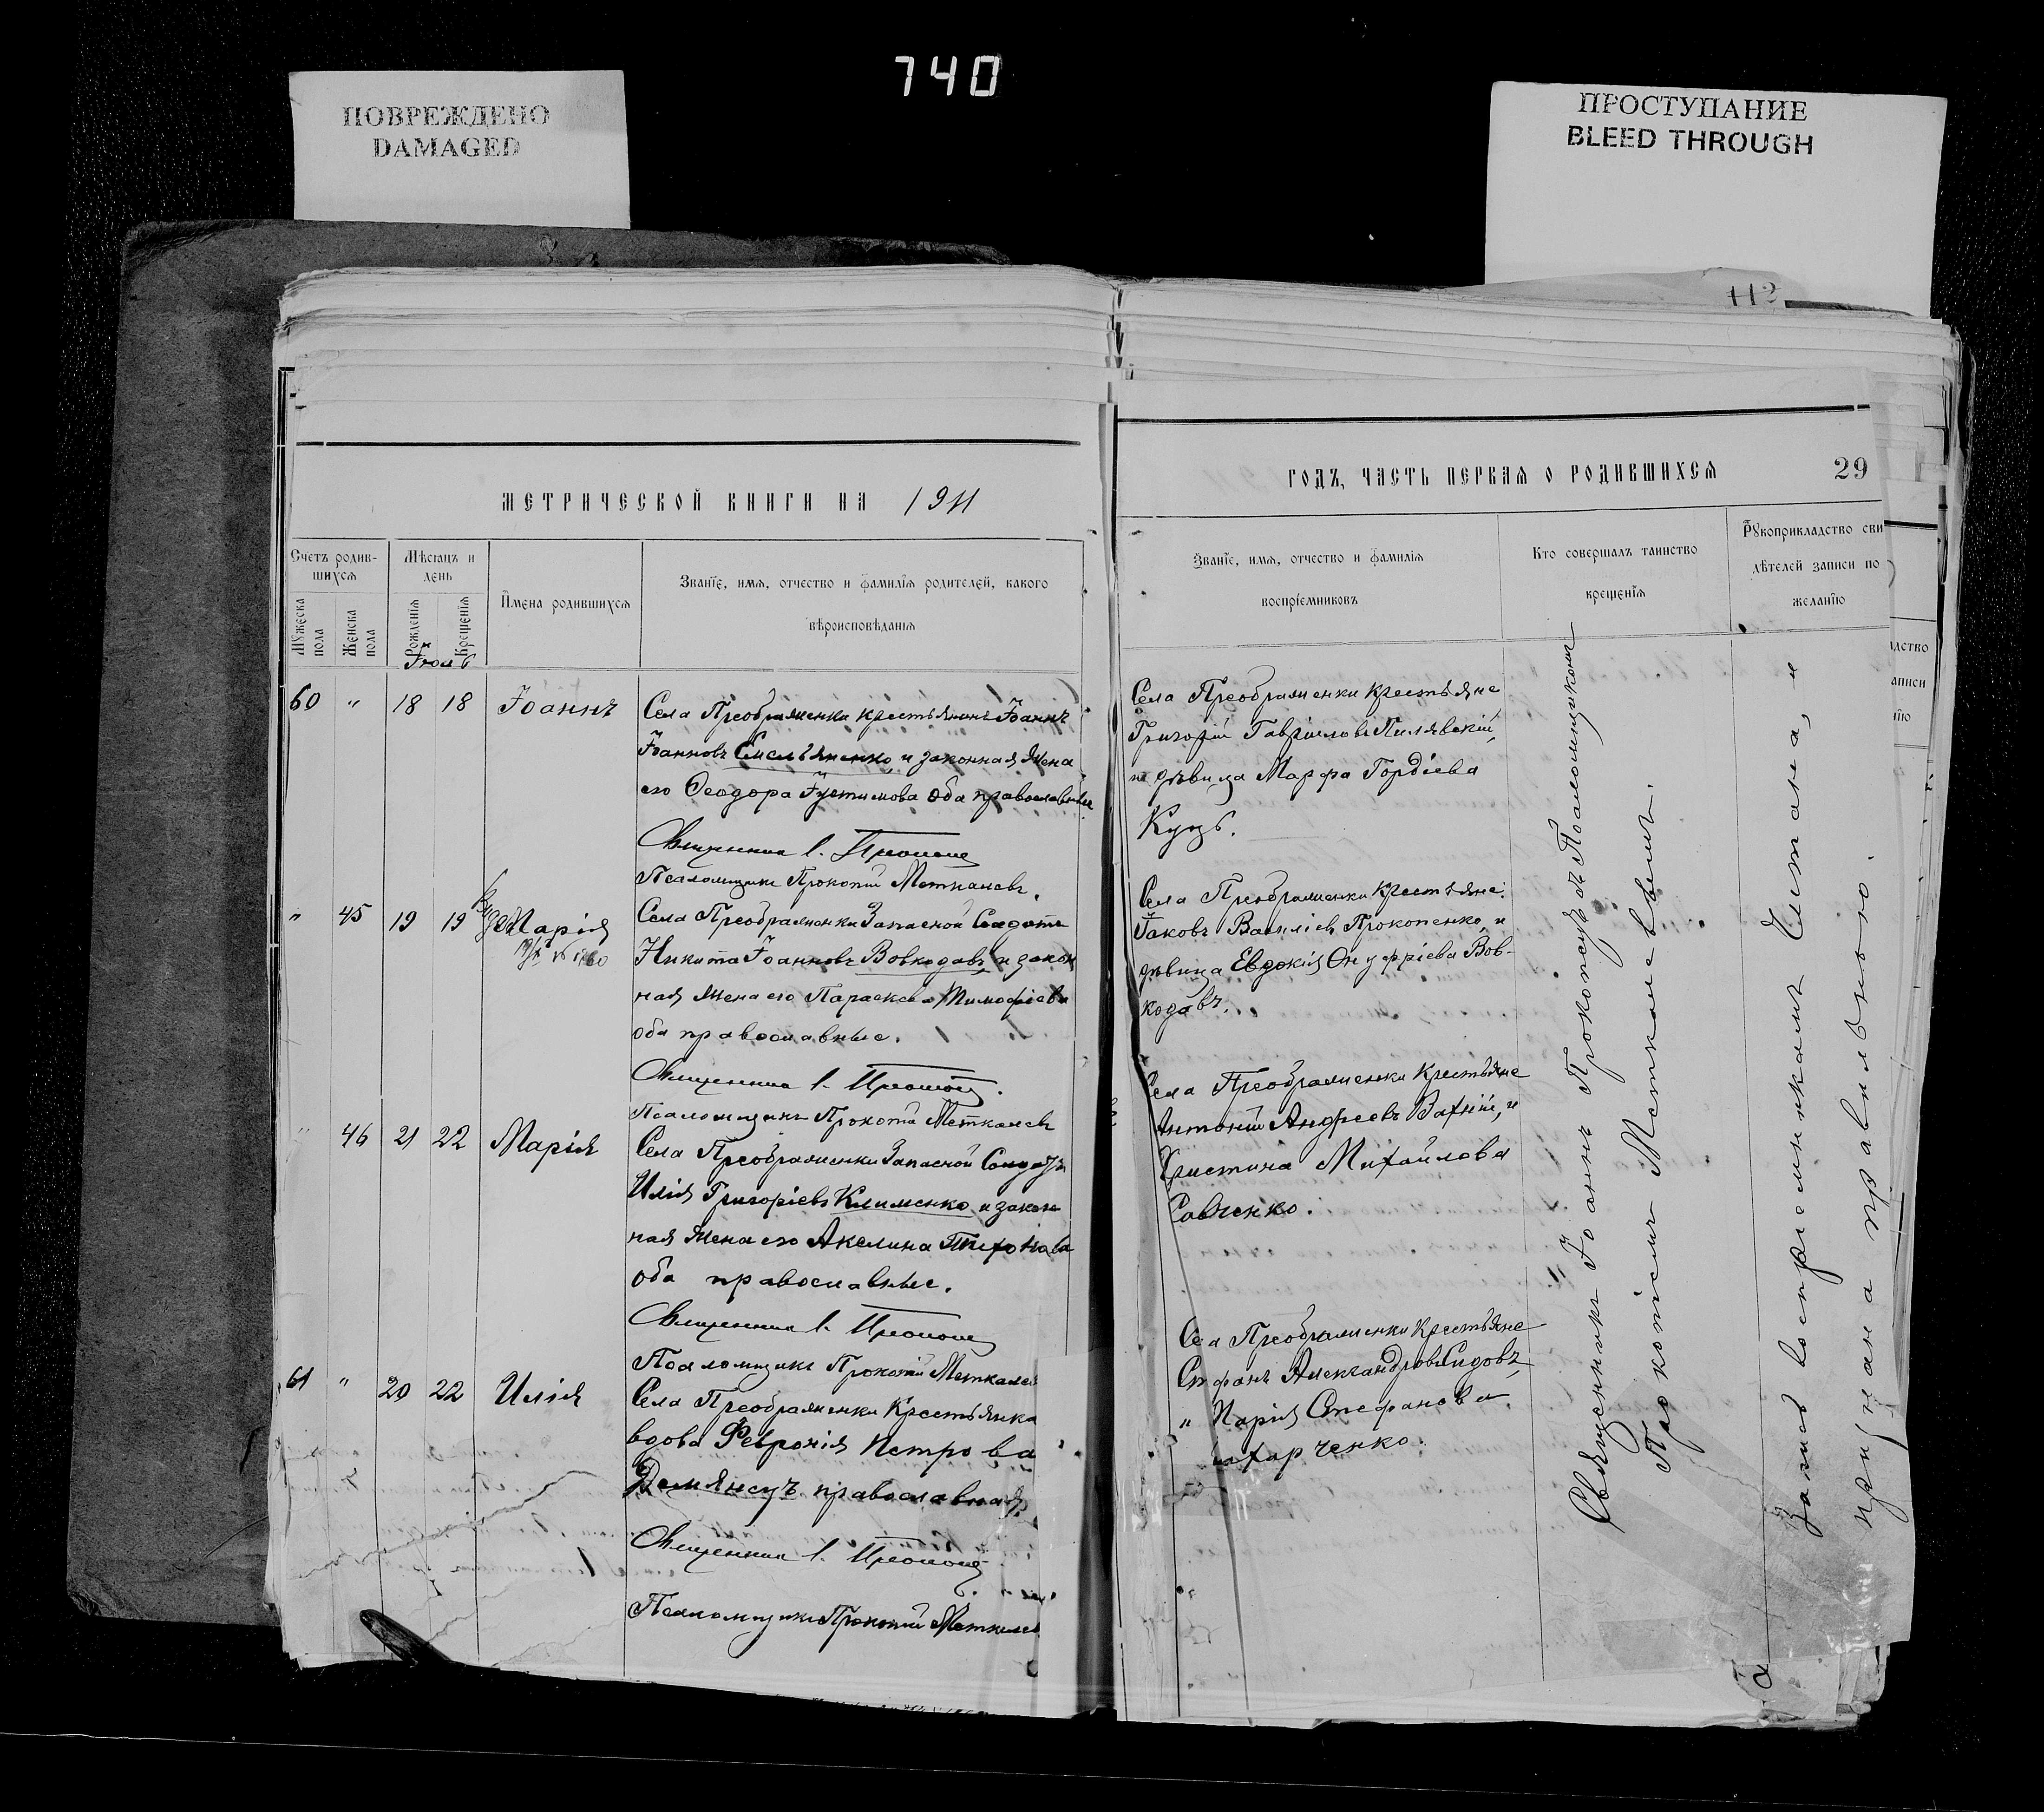 740
ПОВРЕЖДЕНО
DAMAGED
ПРОСТУПАНИЕ
BLEED THROUGH
112
МЕТРИЧЕСКОЙ КНИГИ НА 1911
Счетъ родив-
шихся
Мужеска пола
Женска пола
Мѣсяцъ и
день
Рожденія
Крещенія
Имена родившихся
Званіе, имя, отчество и фамилія родителей, какого
вѣроисповѣданія
60 " 18 18 Іоаннъ
Села Преображенки крестьянинъ Іоаннъ
Іоанновъ Емельяненко, и законная жена
его Ѳеодора Іустимова оба православные.
Священник І.
Псаломщикъ Прокопій Меткалевъ.
" 45 19 19 Марія
Села Преображенки Запасной Солдатъ
Никита Іоанновъ Вовкодавъ, и закон
ная жена его Параскева Тимофіева
оба православные.
Священник І.
Псаломщикъ Прокопій Меткалевъ
" 46 21 22 Марія
Села Преображенки Запасной Солдатъ
Илія Григоріевъ Клименко и закон
ная жена его Акелина Тихонова
оба православные.
Священник І.
Псаломщикъ Прокопій Меткалев
61 " 20 22 Илія
Села Преображенки Крестьянка
вдова Февронія Петрова
Демянсуъ православная.
Священник І.
Псаломщикъ Прокопій Меткалев
ГОДЪ, ЧАСТЬ ПЕРВАЯ О РОДИВШИХСЯ 29
Званіе, имя, отчество и фамилія
воспріемниковъ
Кто совершалъ таинство
крещенія
Рукоприкладство сви
дѣтелей записи по
желанію
Села Преображенки крестьяне
Григорій Гавріиловъ Пилявскій,
и дѣвица Марфа Гордіева
Куцъ.
Села Преображенки крестьяне:
Іаковъ Василіевъ Прокопенко, и
дѣвица Евдокія Онуфріева Вов-
кодавъ.
Села Преображенки Крестьяне
Антоній Андреевъ Вахній, и
Христина Михайлова
Савченко.
Села Преображенки Крестьяне
Стефанъ Александровъ Сидовъ,
" Марія Стефанова
харченко.
Священникъ Іоаннъ Прокопсуъ съ Псаломщикомъ
Прокопіемъ Меткалевымъ.
Запись воспріемникамъ читана, и
признана правильною.